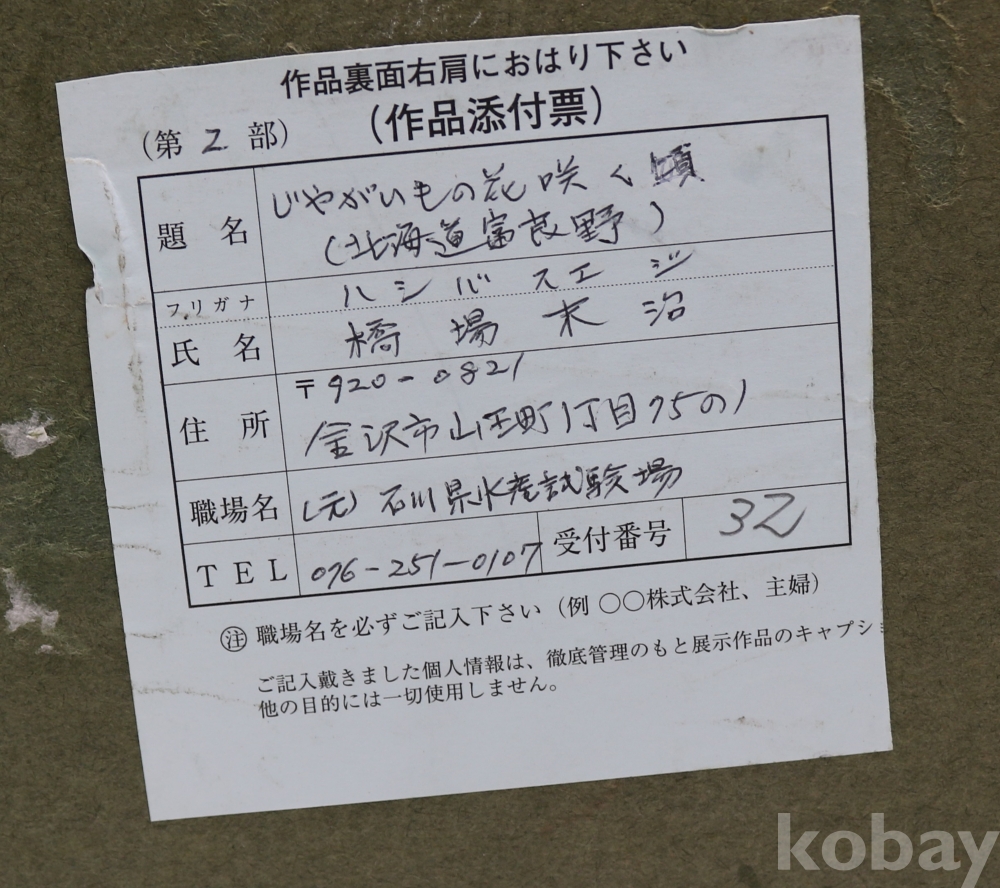 作品裏面右肩におはり下さい
(作品添付票)
(第 2 部)
題 名 じゃがいもの花咲く頃
(北海道富良野)
フリガナ ハシバ スエジ
氏 名 橋場末治
住 所 〒920-0821
金沢市山王町1丁目75の1
職場名 (元)石川県水産試験場
TEL 076-251-0107 受付番号 32
㊟ 職場名を必ずご記入下さい (例 ○○株式会社、主婦)
ご記入戴きました個人情報は、徹底管理のもと展示作品のキャプシ
他の目的には一切使用しません。
kobay